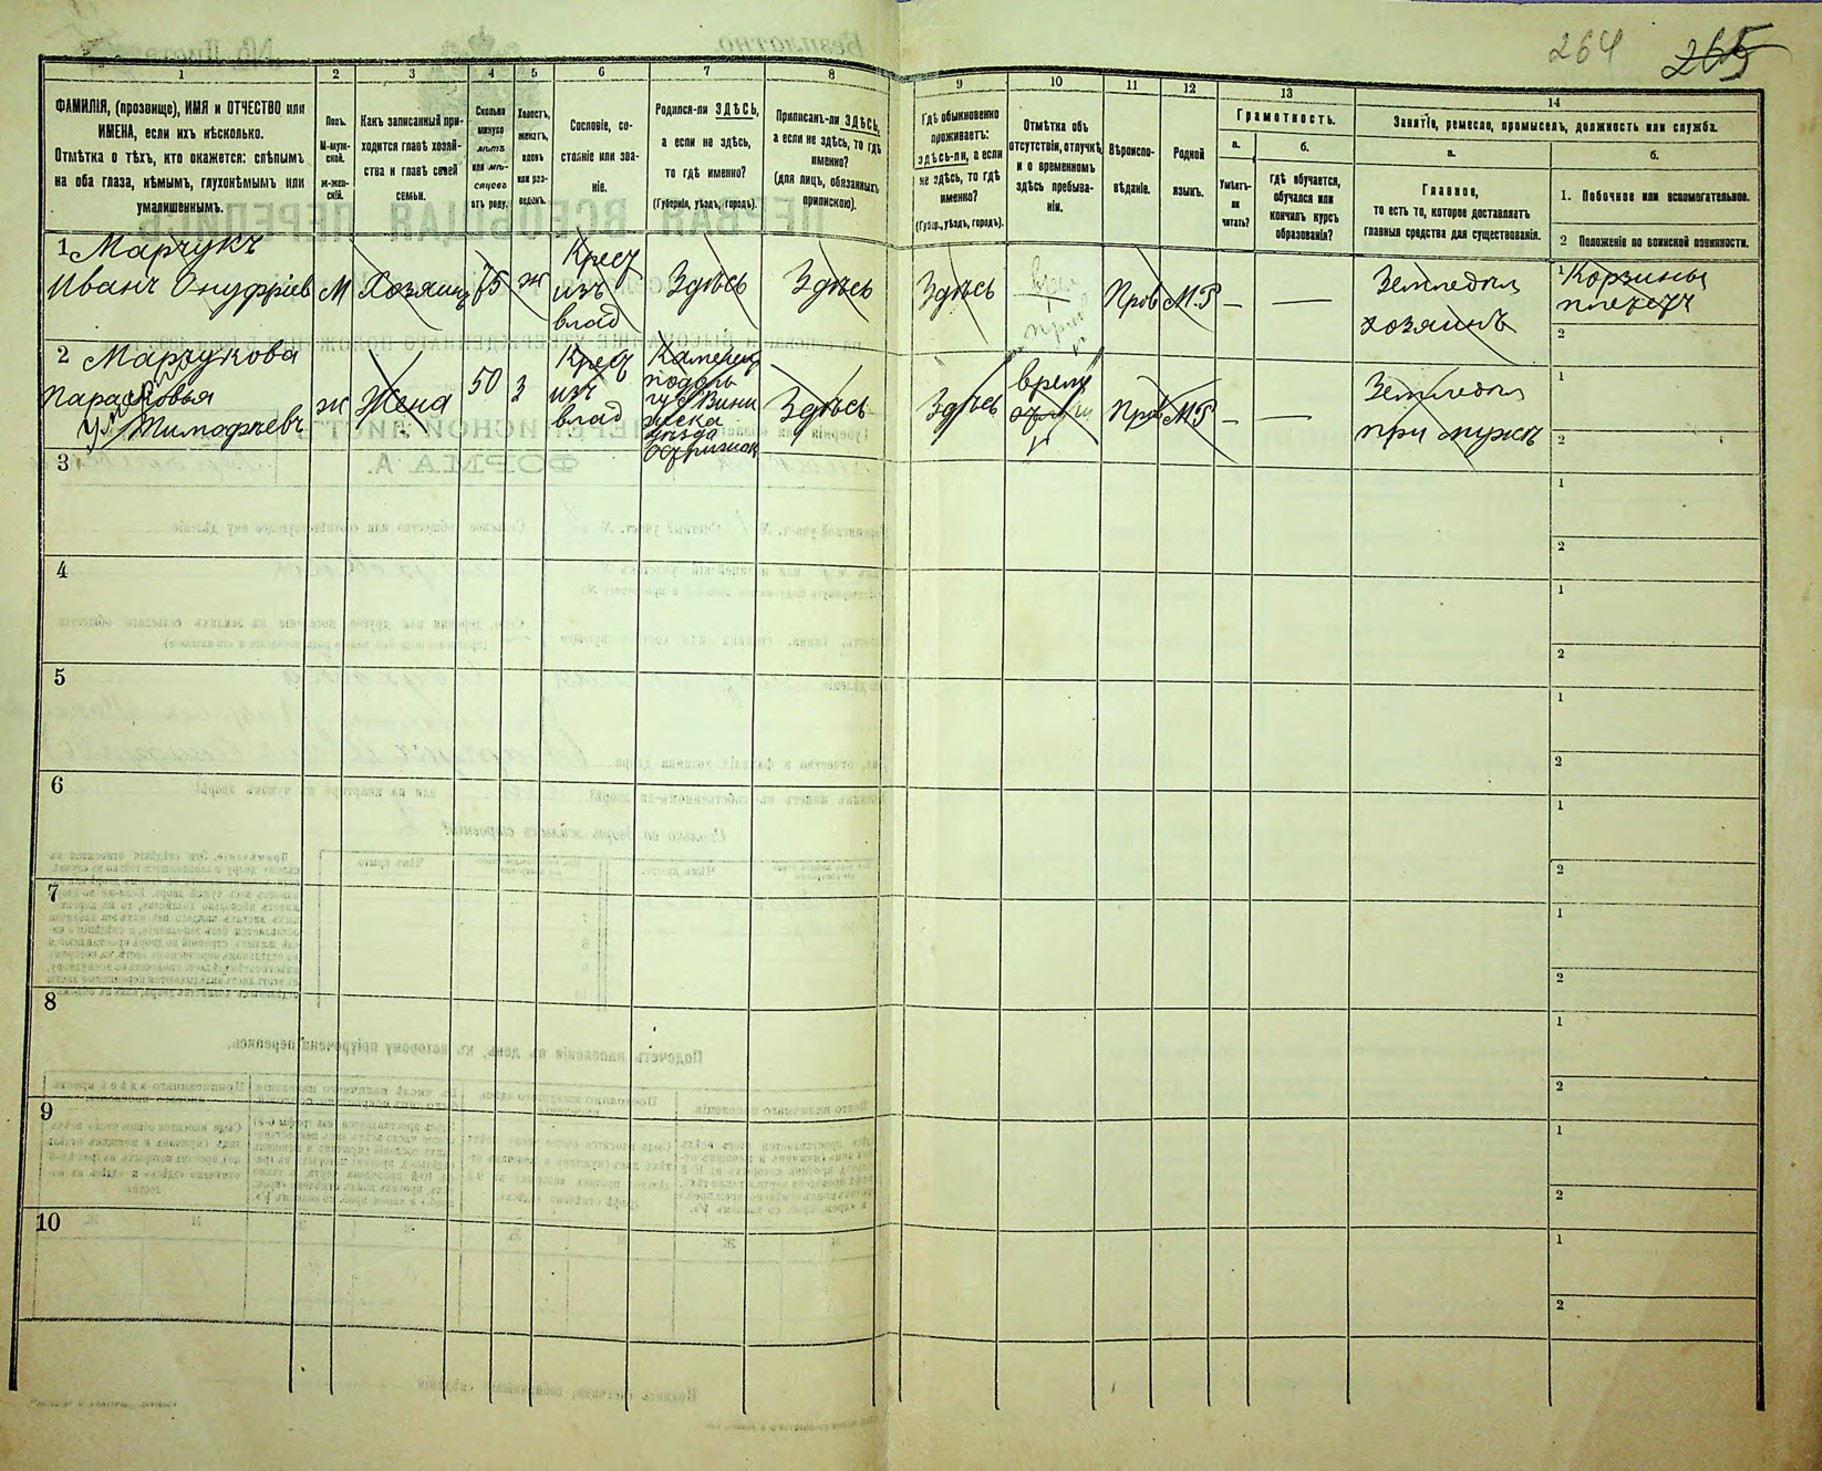 264 265
1 2 3 4 5 6 7 8 9 10 11 12 13 14
ФАМИЛІЯ, (прозвище), ИМЯ и ОТЧЕСТВО или
ИМЕНА, если ихъ нѣсколько.
Отмѣтка о тѣхъ, кто окажется: слѣпымъ
на оба глаза, нѣмымъ, глухонѣмымъ или
умалишеннымъ.
Полъ.
М-муж-
ской.
ж-жен-
скій.
Какъ записанный при-
ходится главѣ хозяй-
ства и главѣ своей
семьи.
Сколько
минуло
лѣтъ
или мѣ-
сяцевъ
отъ роду.
Холостъ,
женатъ,
вдовъ
или раз-
веденъ.
Сословіе, со-
стояніе или зва-
ніе.
Родился-ли ЗДѢСЬ,
а если не здѣсь,
то гдѣ именно?
(Губернія, уѣздъ, городъ).
Приписанъ-ли ЗДѢСЬ,
а если не здѣсь, то гдѣ
именно?
(для лицъ, обязанныхъ
припискою).
Гдѣ обыкновенно
проживаетъ:
здѣсь-ли, а если
не здѣсь, то гдѣ
именно?
(Губер., уѣздъ, городъ).
Отмѣтка объ
отсутствіи, отлучкѣ
и о временномъ
здѣсь пребыва-
ніи.
Вѣроиспо-
вѣданіе.
Родной
языкъ.
Грамотность.
а.
Умѣетъ-
ли
читать?
б.
гдѣ обучается,
обучался или
кончилъ курсъ
образованія?
Занятіе, ремесло, промыселъ, должность или служба.
а.
Главное,
то есть то, которое доставляетъ
главныя средства для существованія.
б.
1. Побочное или вспомогательное.
2 Положеніе по воинской повинности.
1 Марчукъ
Иванъ Онуфріев
М
Хозяинъ
75
ж
Крест
изъ
влад
Здѣсь
Здѣсь
Здѣсь
Прав
М.Р
—
—
Земледѣл
хозяинъ
1 Корзины
плететъ
2
2 Марчукова
Парасковья
Тимофѣевъ
ж
Жена
50
З
Крест
изъ
влад
Каменец
подоль
гу Вини
уѣзда
Здѣсь
Здѣсь
врем
Прав
МР
—
—
Земледѣл
при мужѣ
1
2
3
1
2
4
1
2
5
1
2
6
1
2
7
1
2
8
1
2
9
1
2
10
1
2